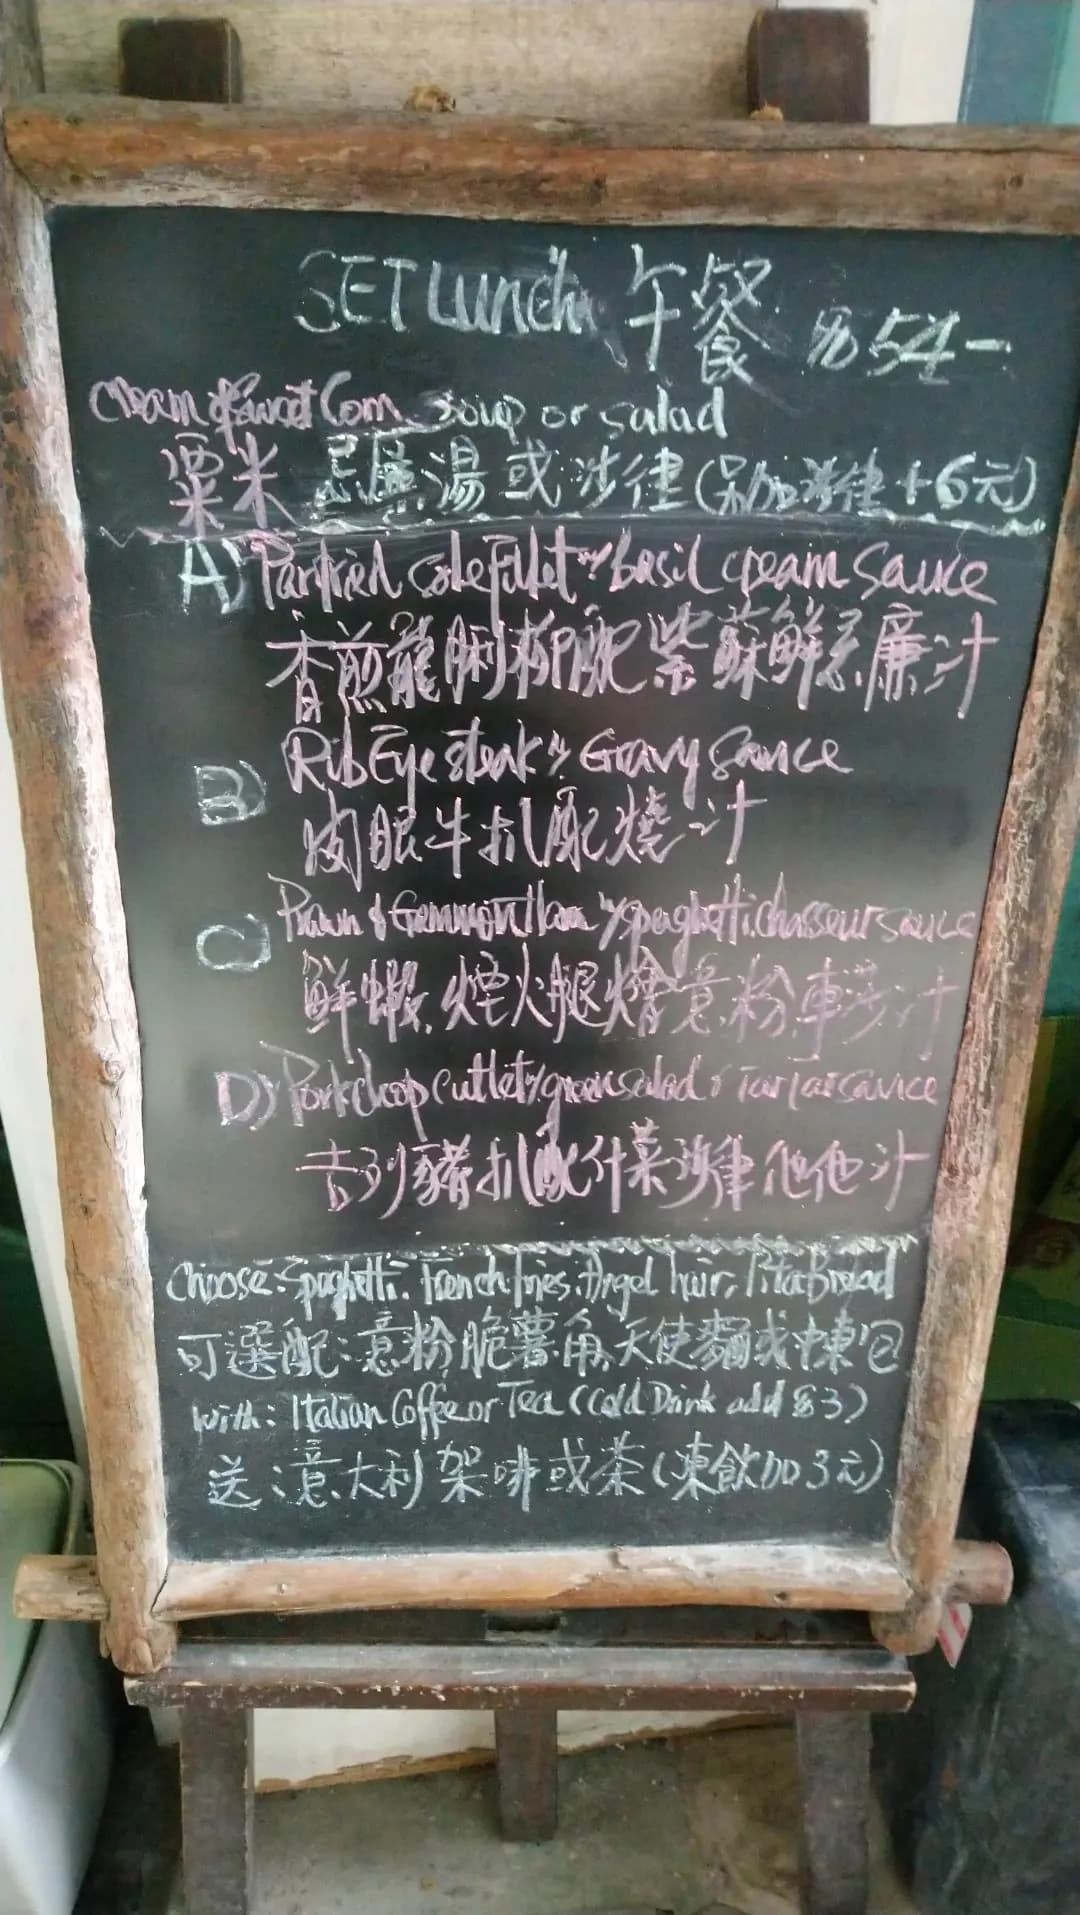 SET Lunch 午餐 $54-
Cream of Sweet Corn Soup or salad
粟米忌廉湯或沙律(另加沙律+6元)
A) Panfried sole fillet w/ basil cream sauce
香煎龍脷柳配紫蘇鮮忌廉汁
B) Rib Eye steak w/ Gravy sauce
肉眼牛扒配燒汁
C) Prawn & Gammon Ham w/ spaghetti chasseur sauce
鮮蝦.煙火腿燴意粉車沙汁
D) Porkchop cutlet w/ green salad & Tartar sauce
吉列豬扒配什菜沙律他他汁
Choose: Spaghetti. French Fries. Angel hair, Pita Bread
可選配:意粉脆薯角,天使麵或
with: Italian Coffee or Tea (Cold Drink add $3)
送:意大利架啡或茶(凍飲加3元)